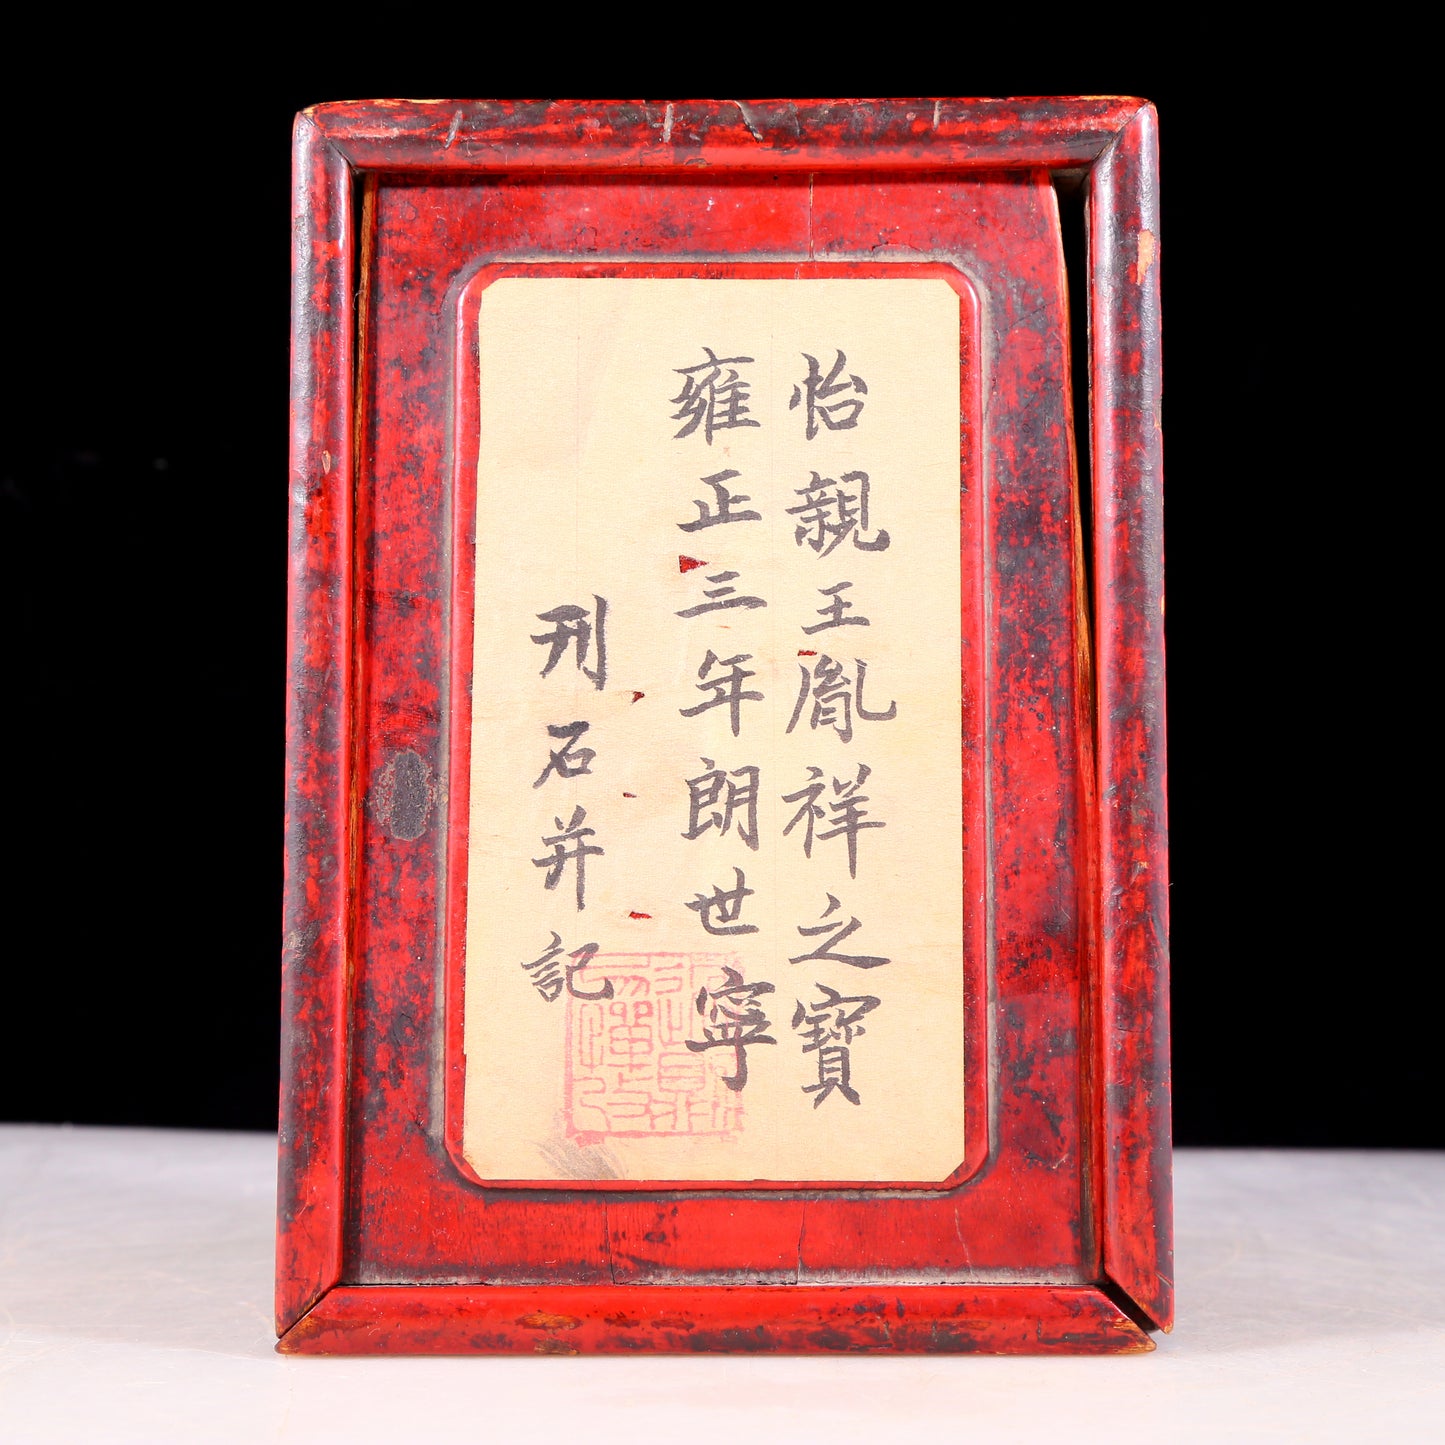 怡親王胤祥之寶
雍正三年朗世寧
刊石并記